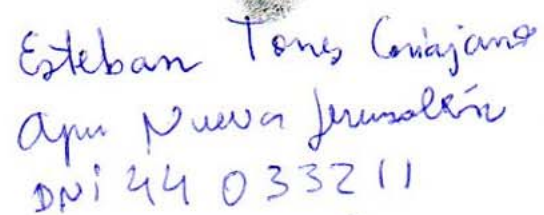 Esteban Torres Cariajano
apu Nueva Jerusalén
DNi 44 033211